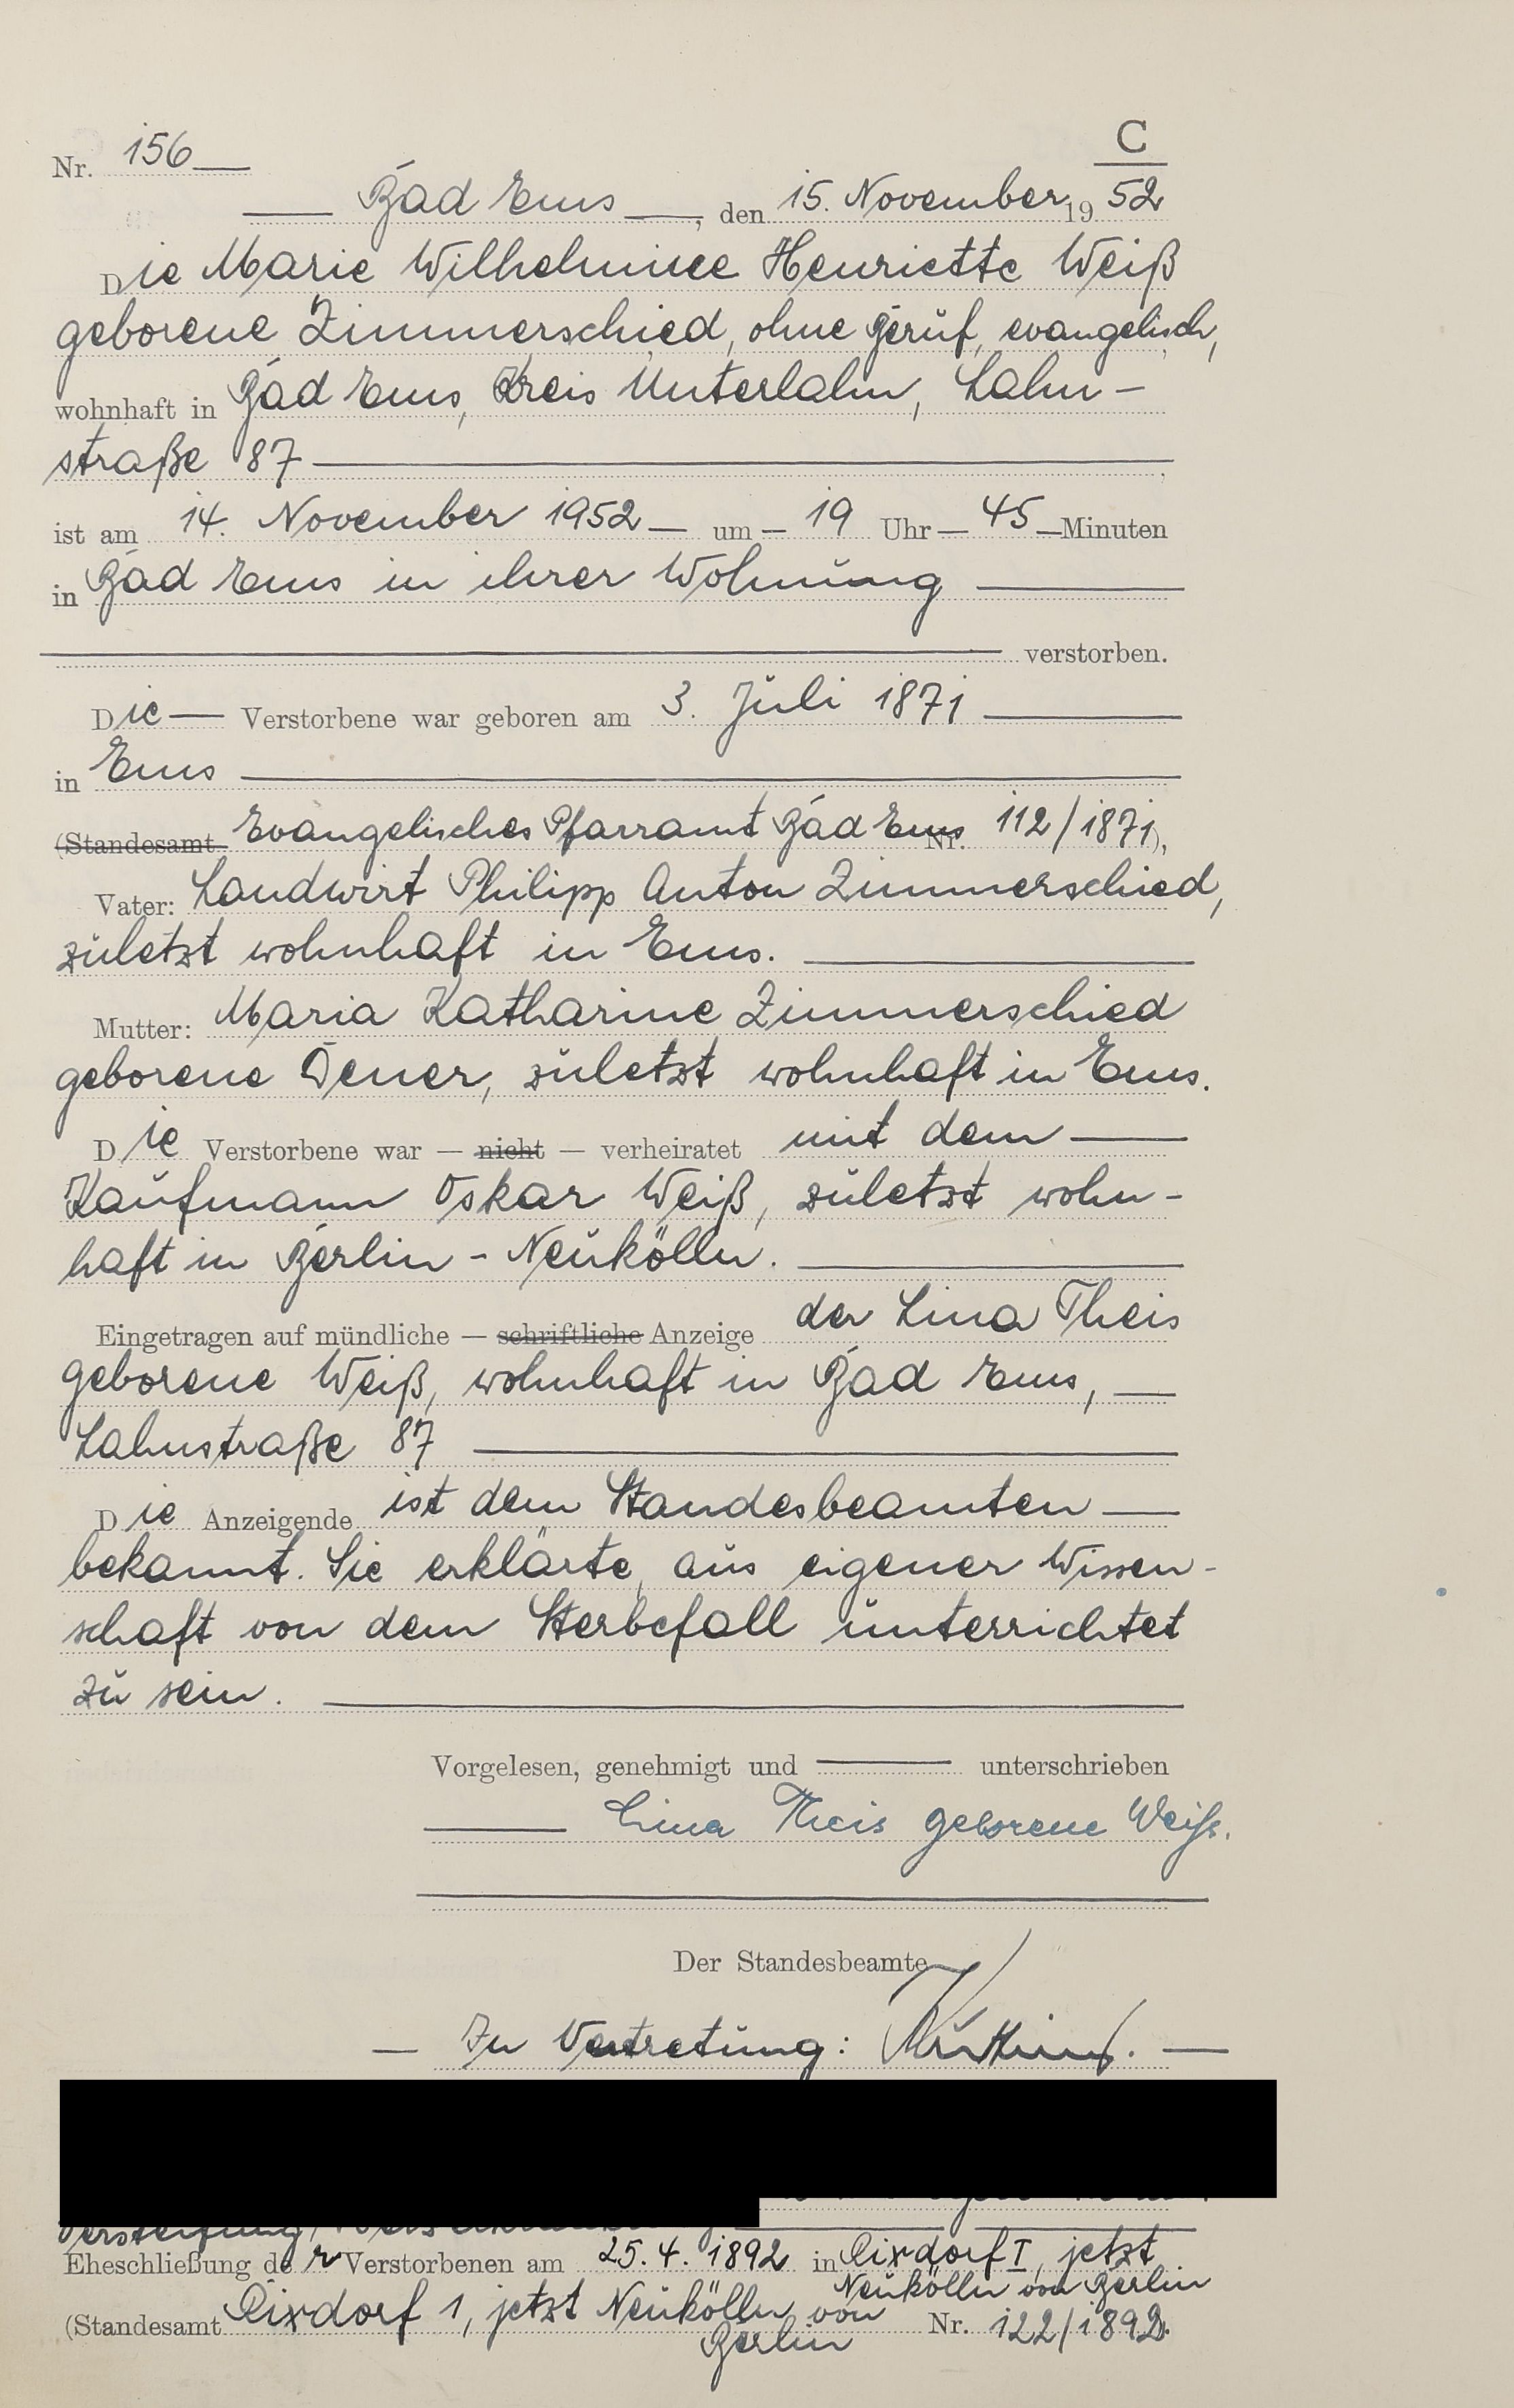 C
Nr. 156
Bad Ems, den 15. November 1952
Die Marie Wilhelmine Henriette Weiß
geborene Zimmerschied, ohne Beruf, evangelisch,
wohnhaft in Bad Ems, Kreis Unterlahn, Lahn-
straße 87,
ist am 14. November 1952 um 19 Uhr 45 Minuten
in Bad Ems in ihrer Wohnung
verstorben.
Die Verstorbene war geboren am 3. Juli 1871
in Ems
(Standesamt Evangelisches Pfarramt Bad Ems Nr. 112/1871),
Vater: Landwirt Philipp Anton Zimmerschied,
zuletzt wohnhaft in Ems.
Mutter: Maria Katharine Zimmerschied
geborene Oener, zuletzt wohnhaft in Ems.
Die Verstorbene war — nicht — verheiratet mit dem
Kaufmann Oskar Weiß, zuletzt wohn-
haft in Berlin-Neukölln.
Eingetragen auf mündliche — schriftliche Anzeige der Lina Theis
geborene Weiß, wohnhaft in Bad Ems,
Lahnstraße 87
Die Anzeigende ist dem Standesbeamten
bekannt. Sie erklärte, aus eigener Wissen-
schaft von dem Sterbefall unterrichtet
zu sein.
Vorgelesen, genehmigt und unterschrieben
Lina Theis geborene Weiß.
Der Standesbeamte
In Vertretung:
Eheschließung der Verstorbenen am 25.4.1892 in Rixdorf I, jetzt
Neukölln von Berlin
(Standesamt Rixdorf 1, jetzt Neukölln von Nr. 122/1892).
Berlin